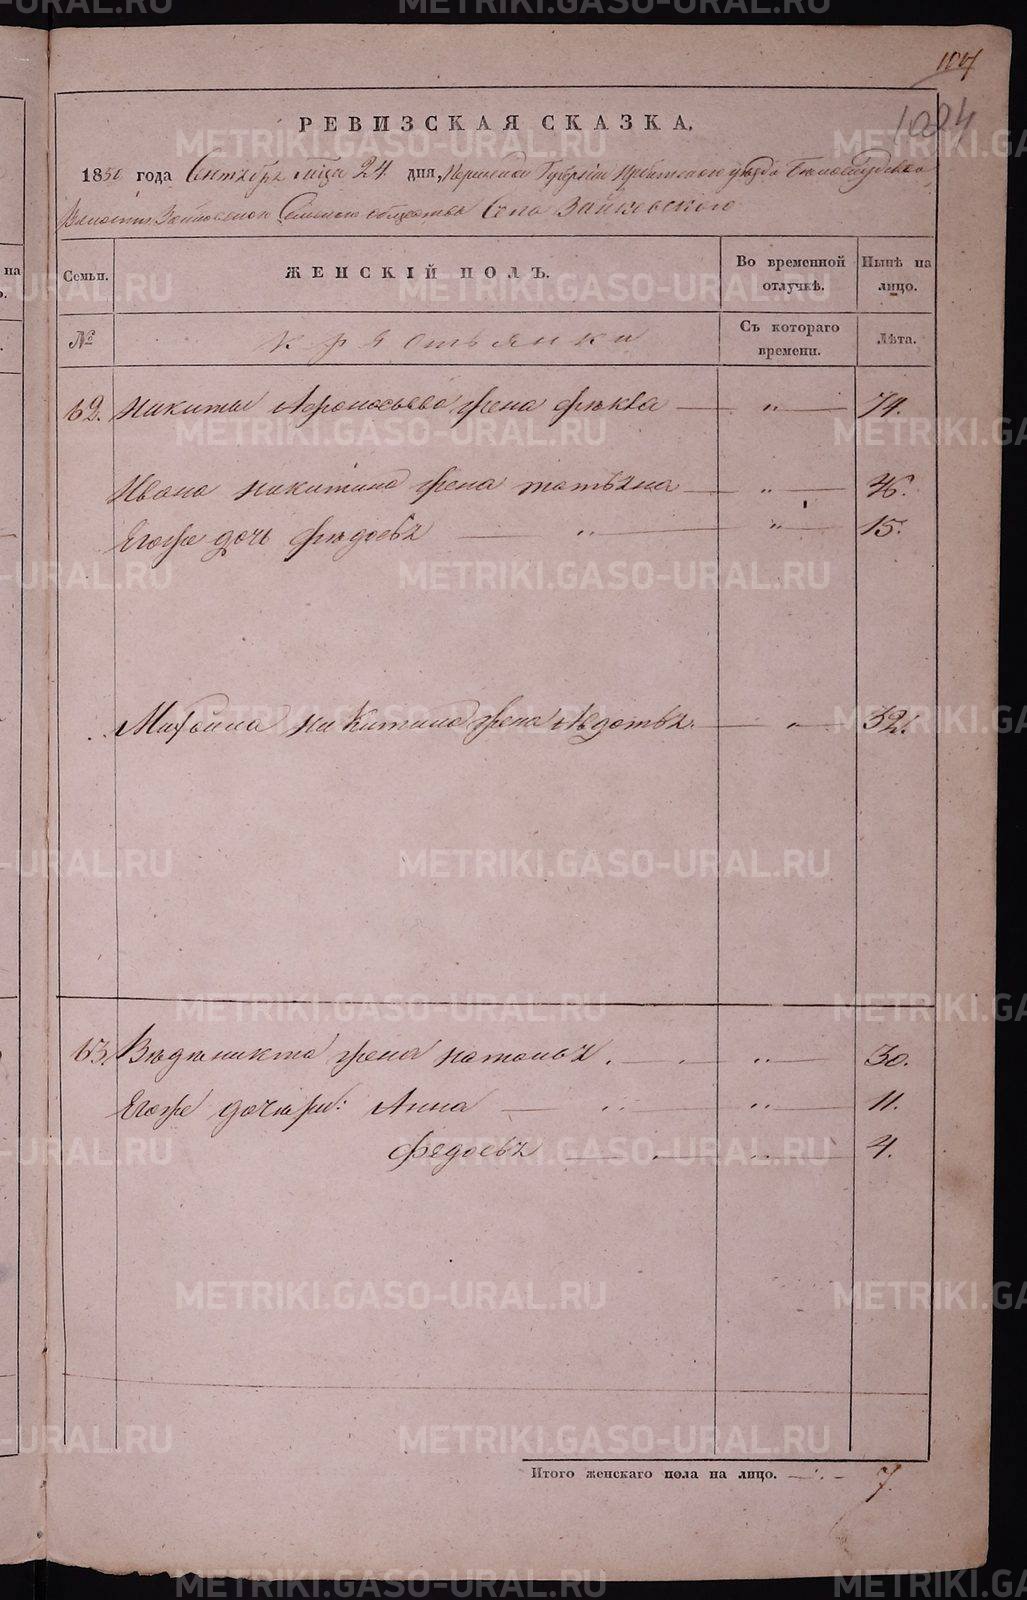 107
1024
РЕВИЗСКАЯ СКАЗКА,
1850 года Сентября мца 24 дня, Пермской Губернии Ирбитского уезда
Волости Зайковского Сельского общества Села Зайковского
Семьи. ЖЕНСКІЙ ПОЛЪ. Во временной отлучкѣ. Нынѣ на лицо.
№ крестьянки Съ котораго времени. Лѣта.
62. Никиты Афонасьева жена Фекла — " — 74.
Ивана Никитина жена Татьяна — " — 46.
Егоже дочь Федосья — " — " — 15.
Михаила Никитина жена Федотья — " — 32.
63. Веденикта жена Наталья. — " — 30.
Егоже дочери: Анна — " — " — 11.
Федосья — " — 4.
Итого женскаго пола на лицо. — 7.
METRIKI.GASO-URAL.RU